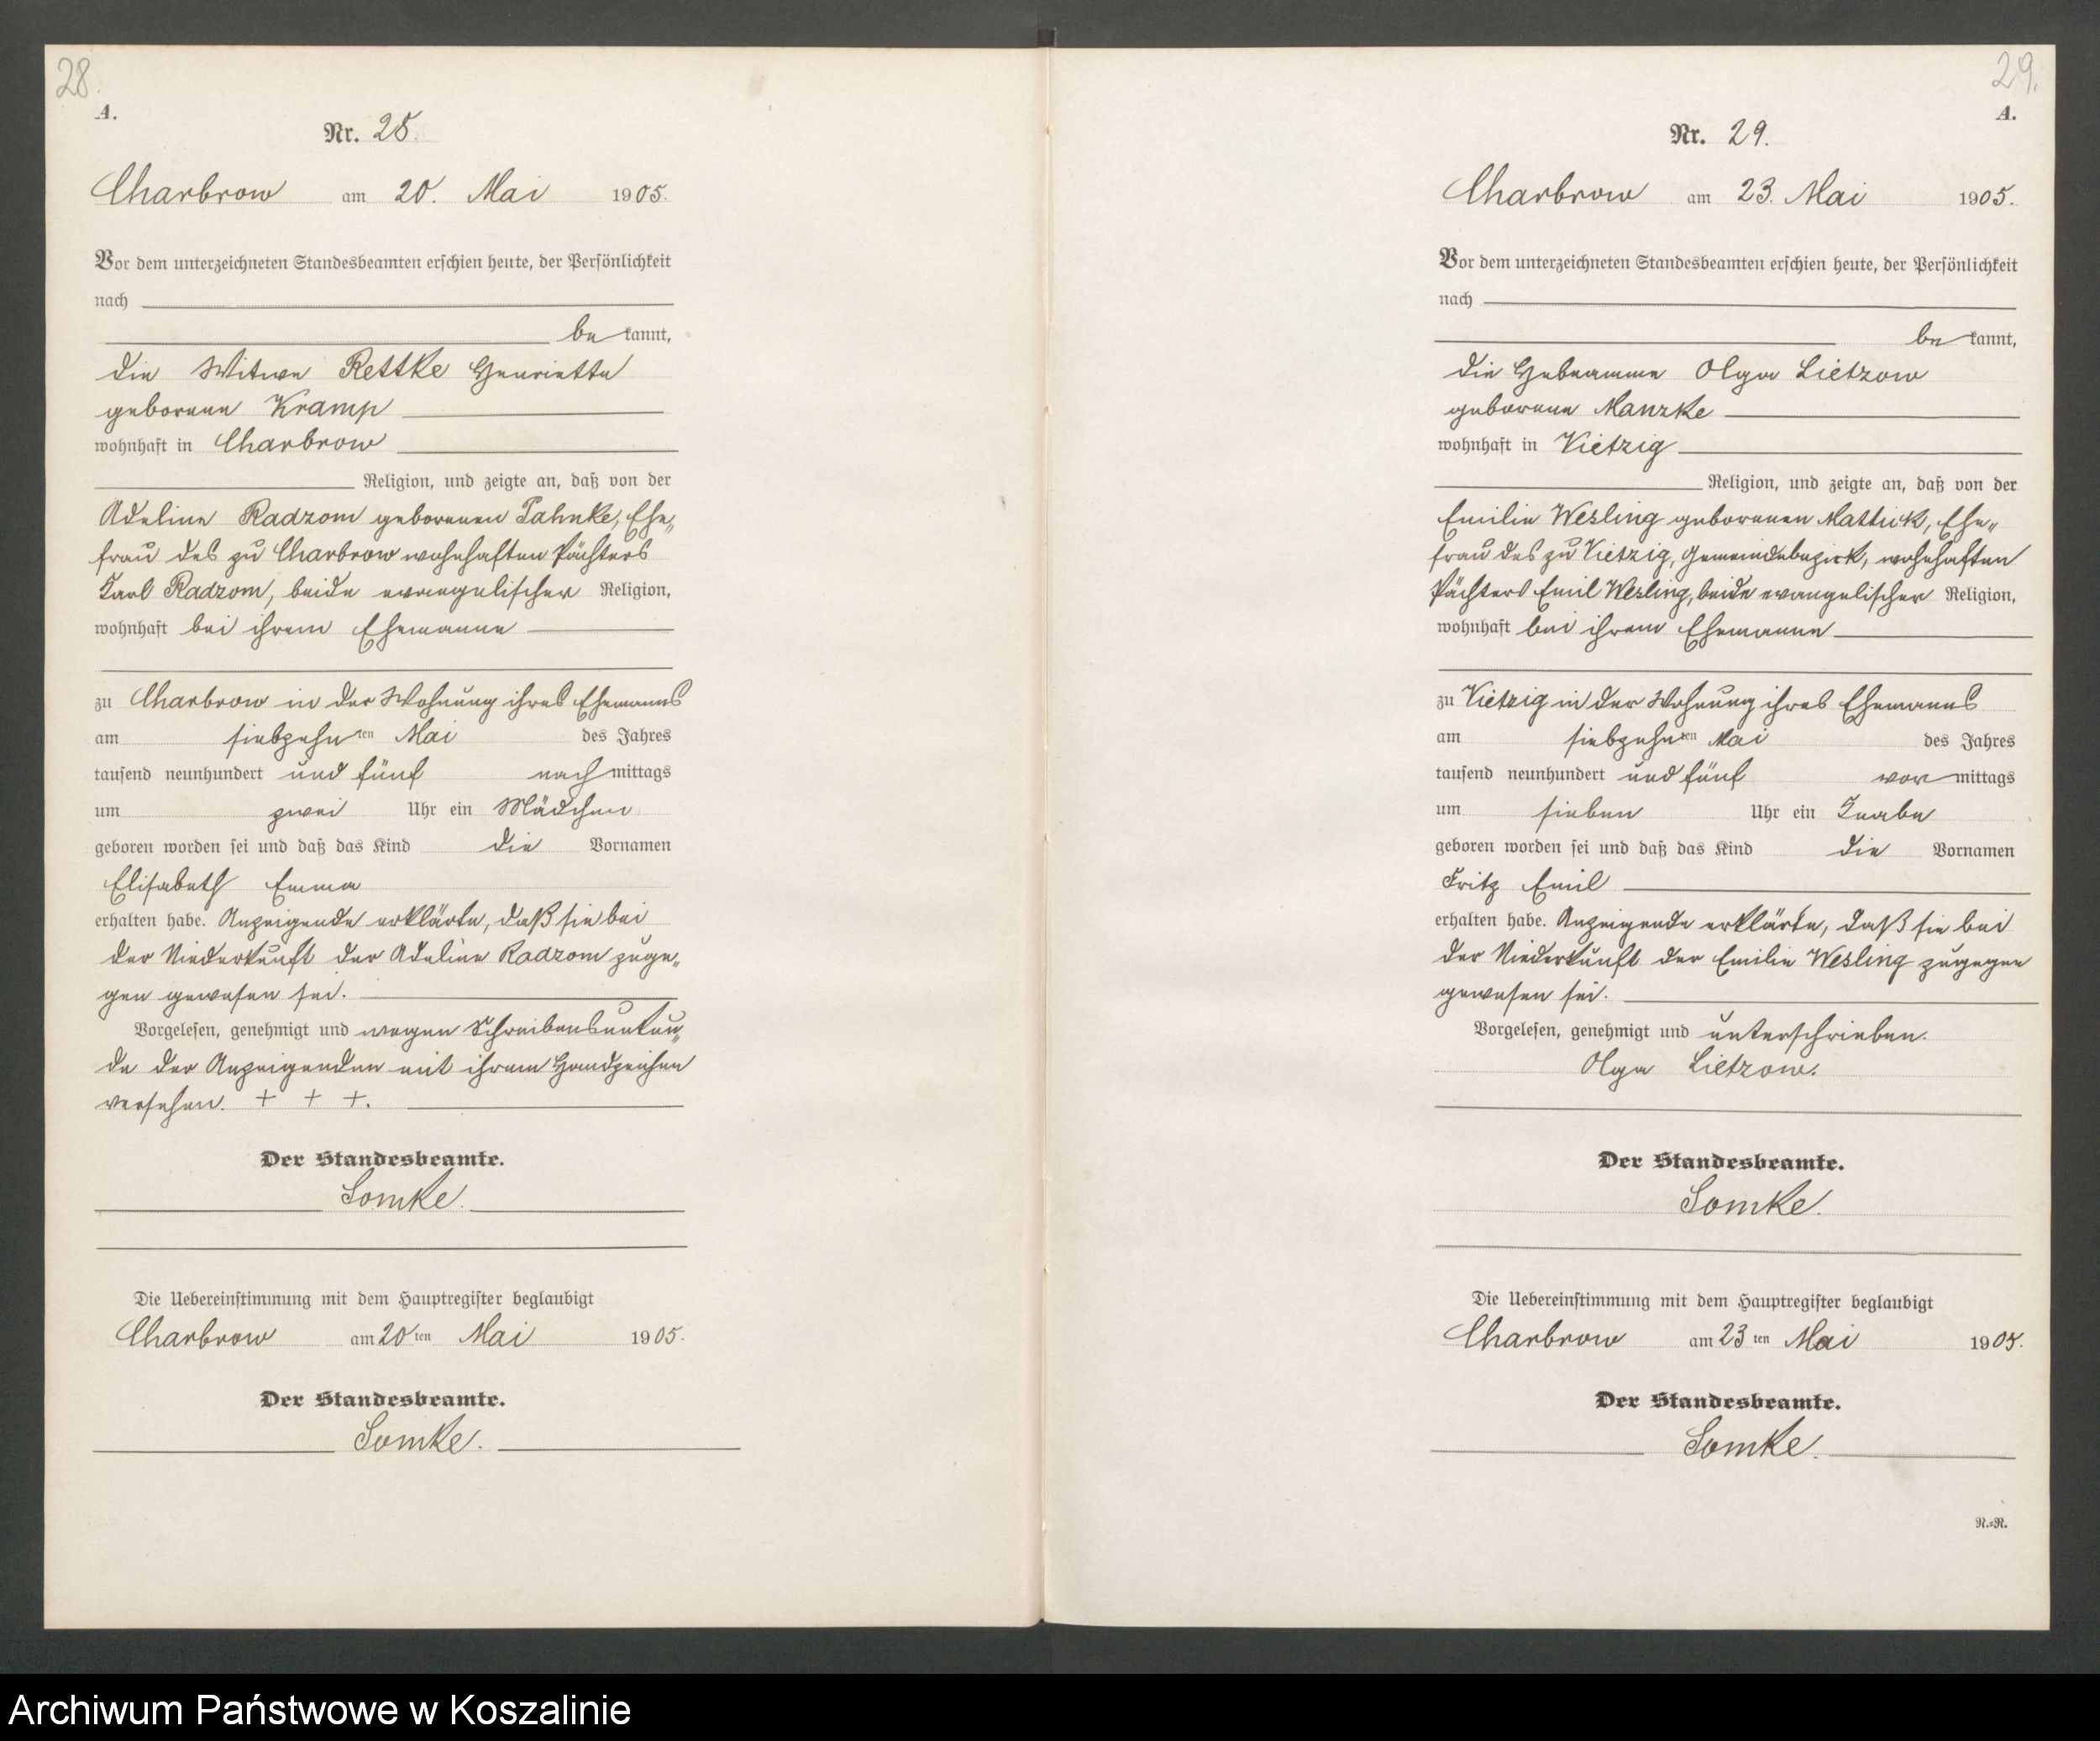 28.
A.
Nr. 28.
Charbrow am 20. Mai 1905.
Vor dem unterzeichneten Standesbeamten erschien heute, der Persönlichkeit
nach
be kannt,
die Witwe Rettke Henriette
geborene Kramp
wohnhaft in Charbrow
Religion, und zeigte an, daß von der
Adeline Radzom geborenen Pahnke, Ehe„
frau des zu Charbrow wohnhaften Pächters
Karl Radzom, beide evangelischer Religion,
wohnhaft bei ihrem Ehemanne
zu Charbrow in der Wohnung ihres Ehemanns
am siebzehnten Mai des Jahres
tausend neunhundert und fünf nach mittags
um zwei Uhr ein Mädchen
geboren worden sei und daß das Kind die Vornamen
Elisabeth Emma
erhalten habe. Anzeigende erklärte, daß sie bei
der Niederkunft der Adeline Radzom zuge„
gen gewesen sei.
Vorgelesen, genehmigt und wegen Schreibensunkun„
de der Anzeigenden mit ihrem Handzeichen
versehen. + + +.
Der Standesbeamte.
Somke.
Die Uebereinstimmung mit dem Hauptregister beglaubigt
Charbrow am 20ten Mai 1905.
Der Standesbeamte.
Somke.
29.
A.
Nr. 29.
Charbrow am 23. Mai 1905.
Vor dem unterzeichneten Standesbeamten erschien heute, der Persönlichkeit
nach
be kannt,
die Hebeamme Olga Lietzow
geborene Manzke
wohnhaft in Vietzig
Religion, und zeigte an, daß von der
Emilie Wesling geborenen Mattick, Ehe„
frau des zu Vietzig, Gemeindebezirk, wohnhaften
Pächters Emil Wesling, beide evangelischer Religion,
wohnhaft bei ihrem Ehemanne
zu Vietzig in der Wohnung ihres Ehemanns
am siebzehnten Mai des Jahres
tausend neunhundert und fünf vor mittags
um sieben Uhr ein Knabe
geboren worden sei und daß das Kind die Vornamen
Fritz Emil
erhalten habe. Anzeigende erklärte, daß sie bei
der Niederkunft der Emilie Wesling zugegen
gewesen sei.
Vorgelesen, genehmigt und unterschrieben.
Olga Lietzow.
Der Standesbeamte.
Somke.
Die Uebereinstimmung mit dem Hauptregister beglaubigt
Charbrow am 23ten Mai 1905.
Der Standesbeamte.
Somke.
N.=N.
Archiwum Państwowe w Koszalinie